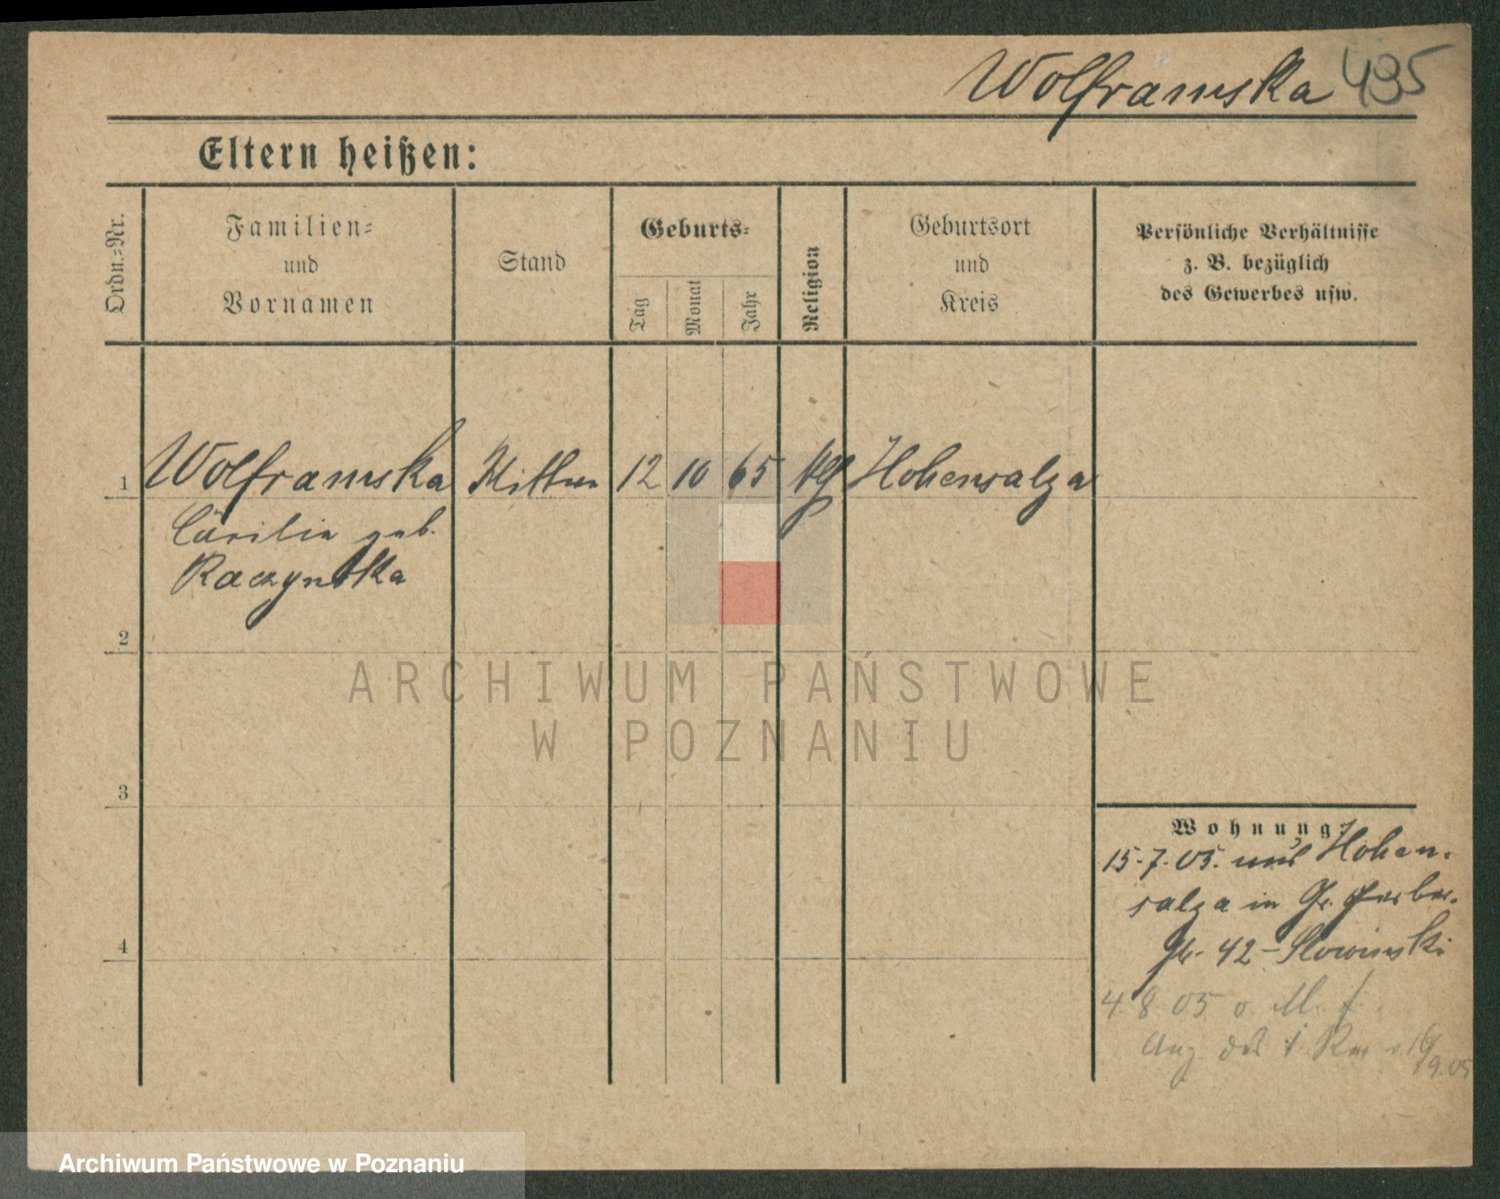 Wolframska 495
Eltern heißen:
Ordn.-Nr.
Familien-
und
Vornamen
Stand
Geburts-
Tag
Monat
Jahr
Religion
Geburtsort
und
Kreis
Persönliche Verhältnisse
z. B. bezüglich
des Gewerbes usw.
1 Wolframska 12 10 65 Hohensalza
Cäcilie geb.
Raczynska
2
ARCHIWUM PAŃSTWOWE
W POZNANIU
3
Wohnung
15.7.05. aus Hohen-
salza in Gr. Gerber-
42 - Slowinski
4
4.8.05
Archiwum Państwowe w Poznaniu